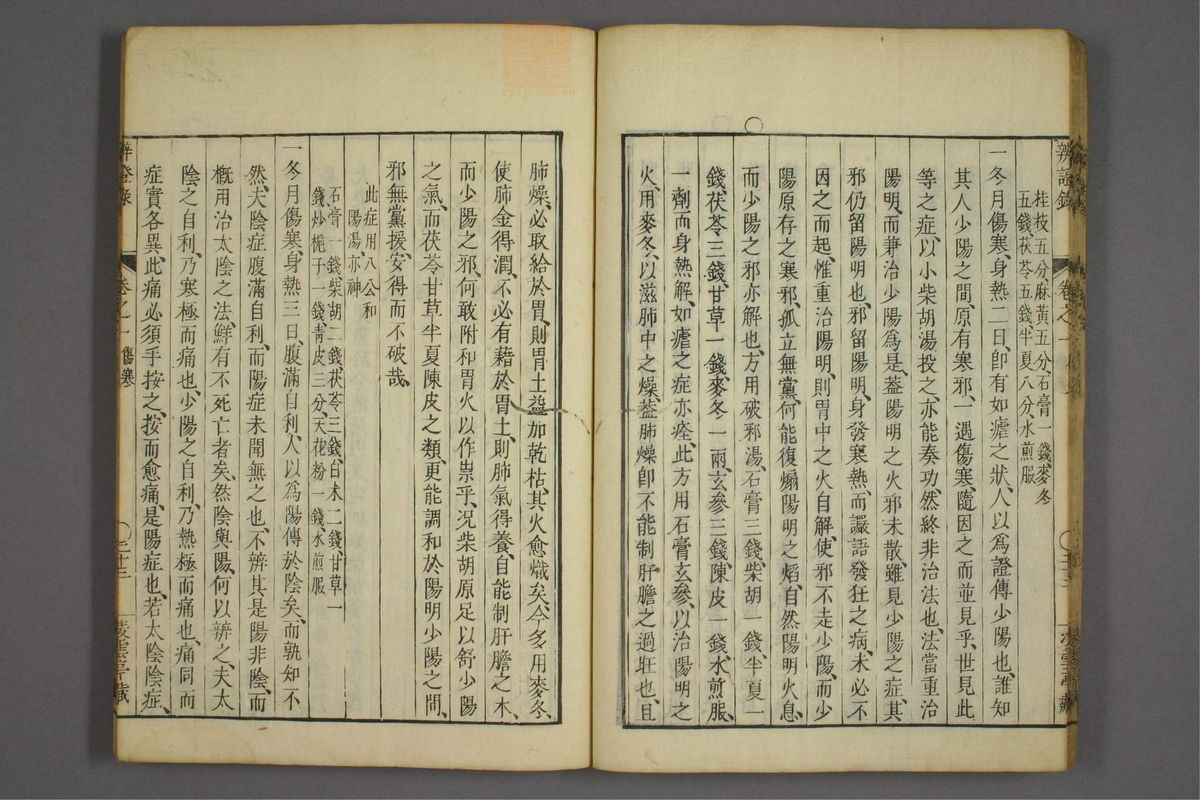 辨證錄
卷之一
桂枝五分麻黃五分石膏一錢麥冬
五錢茯苓五錢半夏八分水煎服
一冬月傷寒、身熱二日、卽有如瘧之狀、人以爲證傳少陽也、誰知
其人少陽之間、原有寒邪、一遇傷寒、隨因之而並見乎、世見此
等之症、以小柴胡湯投之、亦能奏功、然終非治法也、法當重治
陽明、而兼治少陽爲是、葢陽明之火邪未散、雖見少陽之症、其
邪仍留陽明也、邪留陽明、身發寒熱、而讝語發狂之病、未必不
因之而起、惟重治陽明、則胃中之火自解、使邪不走少陽、而少
陽原存之寒邪、孤立無黨、何能復煽陽明之熖、自然陽明火息、
而少陽之邪亦解也、方用破邪湯、石膏三錢、柴胡一錢、半夏一
錢、茯苓三錢、甘草一錢、麥冬一兩、玄參三錢、陳皮一錢、水煎服、
一劑而身熱解、如瘧之症亦痊、此方用石膏玄參、以治陽明之
火、用麥冬、以滋肺中之燥、葢肺燥卽不能制肝膽之過旺也、且
肺燥、必取給於胃、則胃土益加乾枯、其火愈熾矣、今多用麥冬、
使肺金得潤、不必有藉於胃土、則肺氣得養、自能制肝膽之木、
而少陽之邪、何敢附和胃火以作祟乎、况柴胡原足以舒少陽
之氣、而茯苓甘草半夏陳皮之類、更能調和於陽明少陽之間、
邪無黨援、安得而不破哉、
此症用八公和
陽湯亦神
石膏一錢柴胡二錢茯苓三錢白术二錢甘草一
錢炒梔子一錢靑皮三分天花粉一錢水煎服
一冬月傷寒、身熱三日、腹滿自利、人以爲陽傳於陰矣、而孰知不
然、夫陰症腹滿自利、而陽症未聞無之也、不辨其是陽非陰、而
槪用治太陰之法、鮮有不死亡者矣、然陰與陽、何以辨之、夫太
陰之自利、乃寒極而痛也、少陽之自利、乃熱極而痛也、痛同而
症實各異、此痛必須手按之、按而愈痛、是陽症也、若太陰陰症、
辨證錄
卷之一
傷寒
二十三